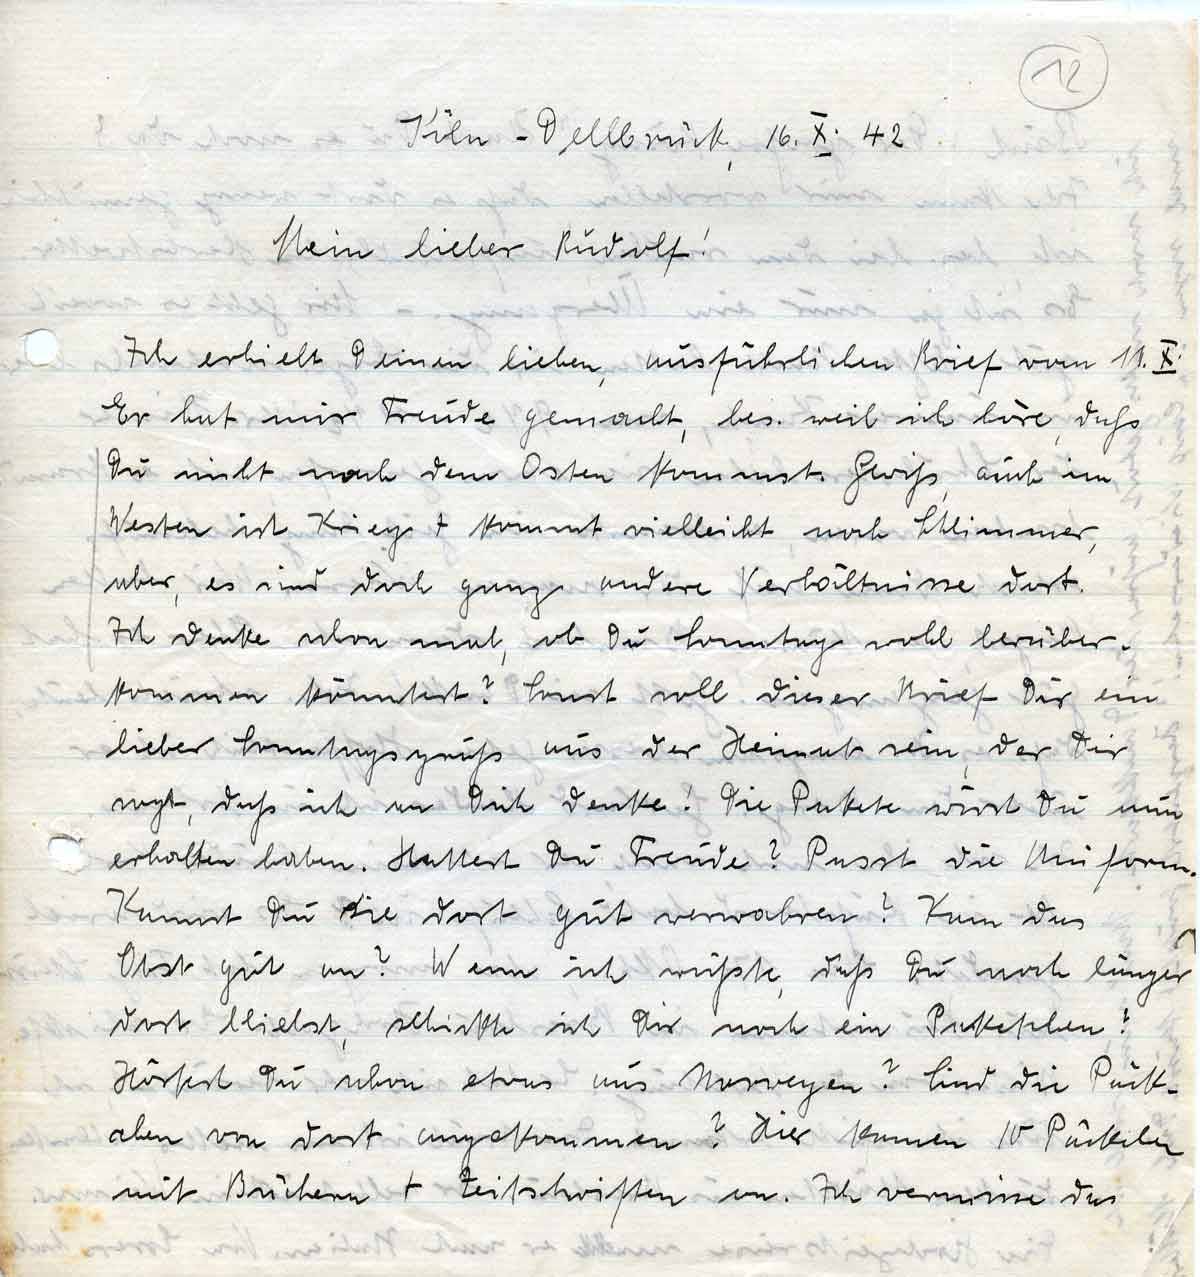 12
Köln - Dellbrück, 16. X. 42
Mein lieber Rudolf!
Ich erhielt Deinen lieben, ausführlichen Brief vom 11. X.
Er hat mir Freude gemacht, bes. weil ich höre, daſs
Du nicht nach dem Osten kommst. Gewiſs, auch im
Westen ist Krieg + kommt vielleicht noch Schlimmer,
aber, es sind doch ganz andere Verhältnisse dort.
Ich denke schon mal, ob Du Sonntag wohl herüber-
kommen könntest? Sonst soll dieser Brief Dir ein
lieber Sonntagsgruſs aus der Heimat sein, der Dir
sagt, daſs ich an Dich denke! Die Pakete wirst Du nun
erhalten haben. Hattest Du Freude? Passt die Uniform.
Kannst Du sie dort gut verwahren? Kam das
Obst gut an? Wenn ich wüſste, daſs Du noch länger
dort bliebst, schickte ich Dir noch ein Paketchen?
Hörtest Du schon etwas aus Norwegen? Sind die Päck-
chen von dort angekommen? Hier kamen 10 Päckchen
mit Büchern + Zeitschriften an. Ich vermisse das